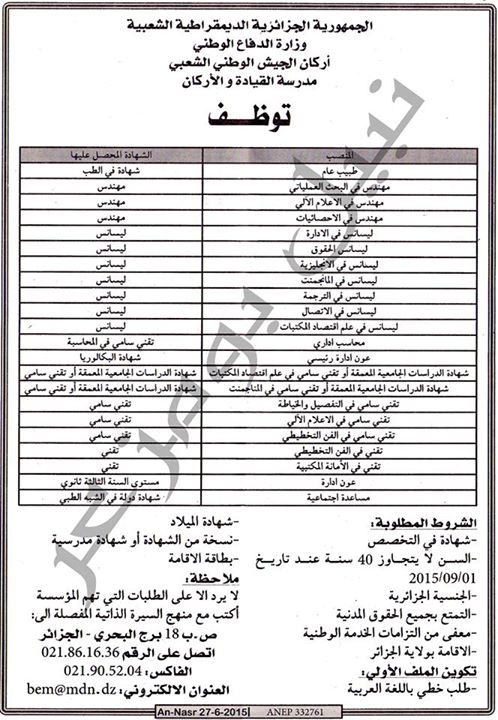 الجمهورية الجزائرية الديمقراطية الشعبية
وزارة الدفاع الوطني
أركان الجيش الوطني الشعبي
مدرسة القيادة و الأركان
توظف
المنصب الشهادة المحصل عليها
طبيب عام شهادة في الطب
مهندس في البحث العملياتي مهندس
مهندس في الاعلام الآلي مهندس
مهندس في الاحصائيات مهندس
ليسانس في الادارة ليسانس
ليسانس الحقوق ليسانس
ليسانس في الانجليزية ليسانس
ليسانس في المانجمنت ليسانس
ليسانس في الترجمة ليسانس
ليسانس في الاتصال ليسانس
ليسانس في علم اقتصاد المكتبات ليسانس
محاسب اداري تقني سامي في المحاسبة
عون ادارة رئيسي شهادة البكالوريا
شهادة الدراسات الجامعية المعمقة أو تقني سامي في علم اقتصاد المكتبات شهادة الدراسات الجامعية المعمقة أو تقني سامي
شهادة الدراسات الجامعية المعمقة أو تقني سامي في المناجمنت شهادة الدراسات الجامعية المعمقة أو تقني سامي
تقني سامي في التفصيل والخياطة تقني سامي
تقني سامي في الاعلام الآلي تقني سامي
تقني سامي في الفن التخطيطي تقني سامي
تقني في الفن التخطيطي تقني
تقني في الأمانة المكتبية تقني
عون ادارة مستوى السنة الثالثة ثانوي
مساعدة اجتماعية شهادة دولة في الشبه الطبي
الشروط المطلوبة:
-شهادة في التخصص
-السن لا يتجاوز 40 سنة عند تاريخ
2015/09/01
-الجنسية الجزائرية
-التمتع بجميع الحقوق المدنية
-معفى من التزامات الخدمة الوطنية
-الاقامة بولاية الجزائر
تكوين الملف الأولي:
-طلب خطي باللغة العربية
-شهادة الميلاد
-نسخة من الشهادة أو شهادة مدرسية
-بطاقة الاقامة
ملاحظة:
لا يرد الا على الطلبات التي تهم المؤسسة
أكتب مع منهج السيرة الذاتية المفصلة الى:
ص.ب 18 برج البحري - الجزائر
اتصل على الرقم 021.86.16.36
الفاكس: 021.90.52.04
العنوان الالكتروني: bem@mdn.dz
An-Nasr 27-6-2015 ANEP 332761